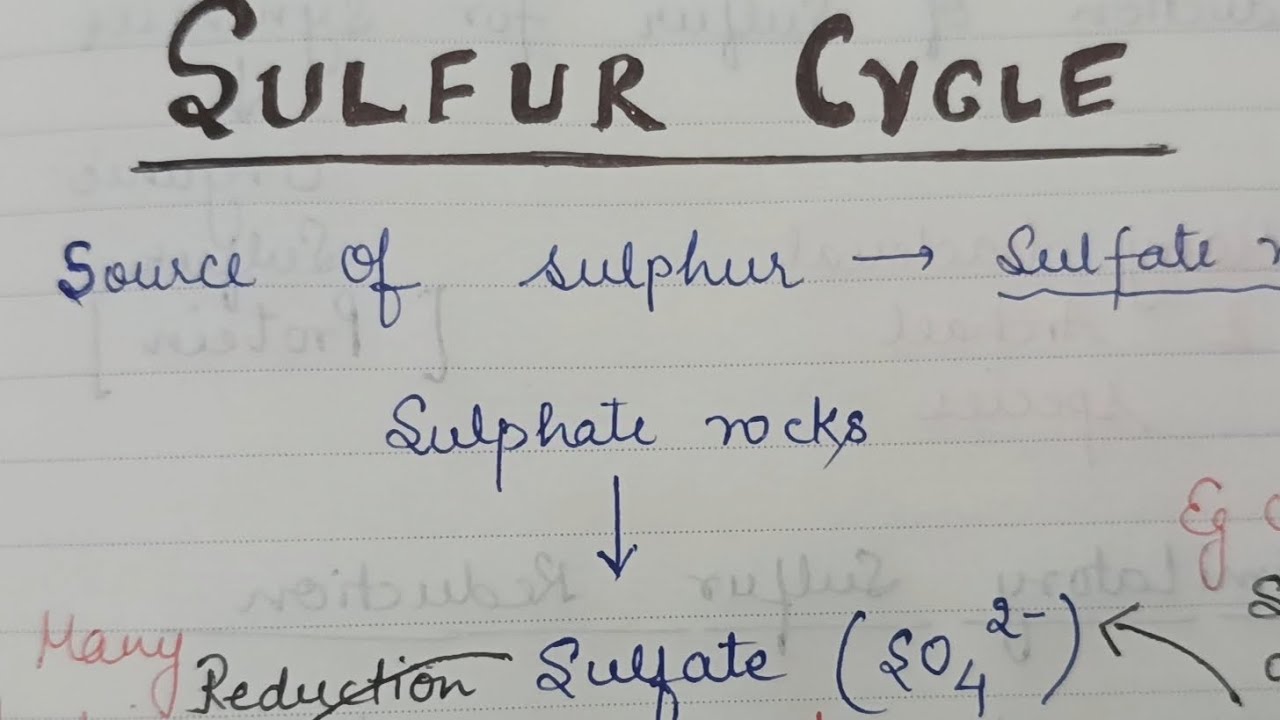 SULFUR CYCLE
Source of sulphur → Sulfate
Sulphate rocks
↓
Eg
Many Reduction Sulfate (SO₄²⁻)